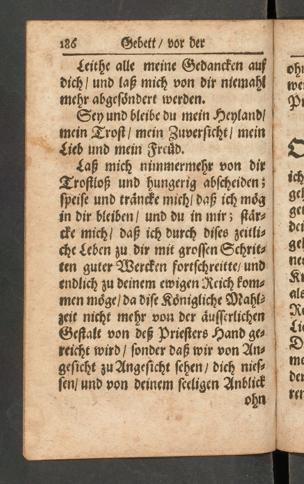 186 Gebett / vor der
Leithe alle meine Gedancken auf
dich / und laß mich von dir niemahl
mehr abgesöndert werden.
Sey und bleibe du mein Heyland /
mein Trost / mein Zuversicht / mein
Lieb und mein Freüd.
Laß mich nimmermehr von dir
Trostloß und hungerig abscheiden;
speise und träncke mich / daß ich mög
in dir bleiben / und du in mir; stär-
cke mich / daß ich durch dises zeitli-
che Leben zu dir mit grossen Schrit-
ten guter Wercken fortschreitte / und
endlich zu deinem ewigen Reich kom-
men möge / da dise Königliche Mahl-
zeit nicht mehr von der äusserlichen
Gestalt von deß Priesters Hand ge-
reicht wird / sonder daß wir von An-
gesicht zu Angesicht sehen / dich nies-
sen / und von deinem seeligen Anblick
ohn